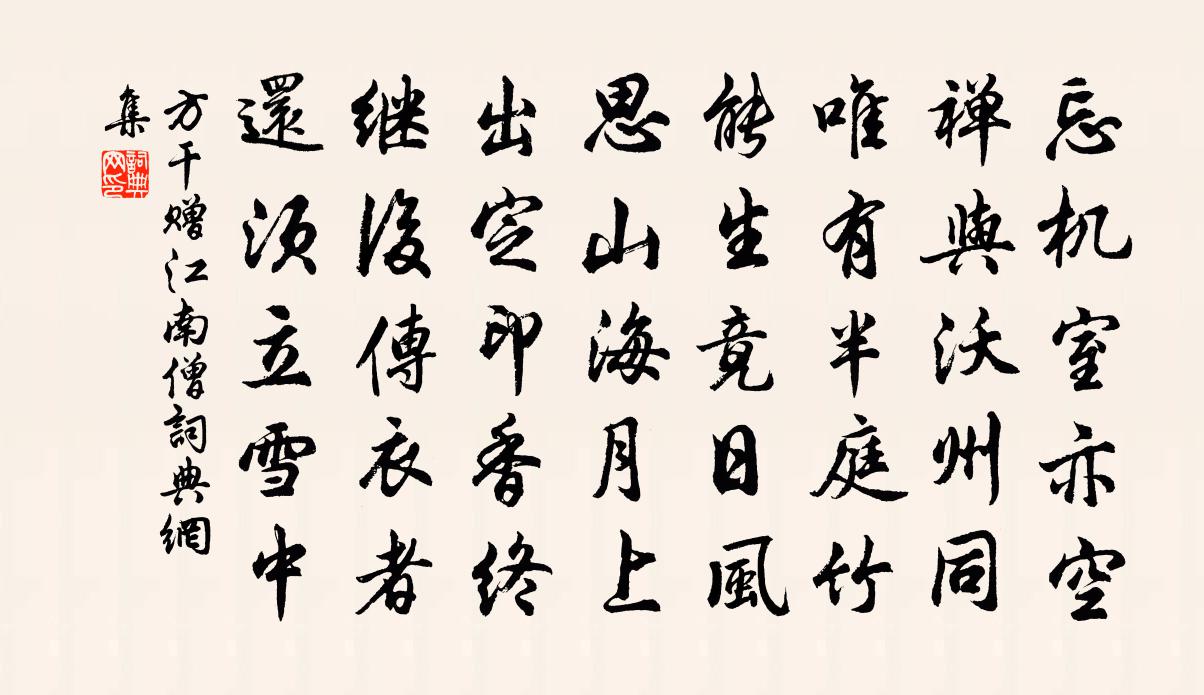 忘机室亦空
禅與沃州同
唯有半庭竹
能生竟日風
思山海月上
出定印香终
继後傳衣者
還须立雪中
方干赠江南僧詞典網
集
詞典网印